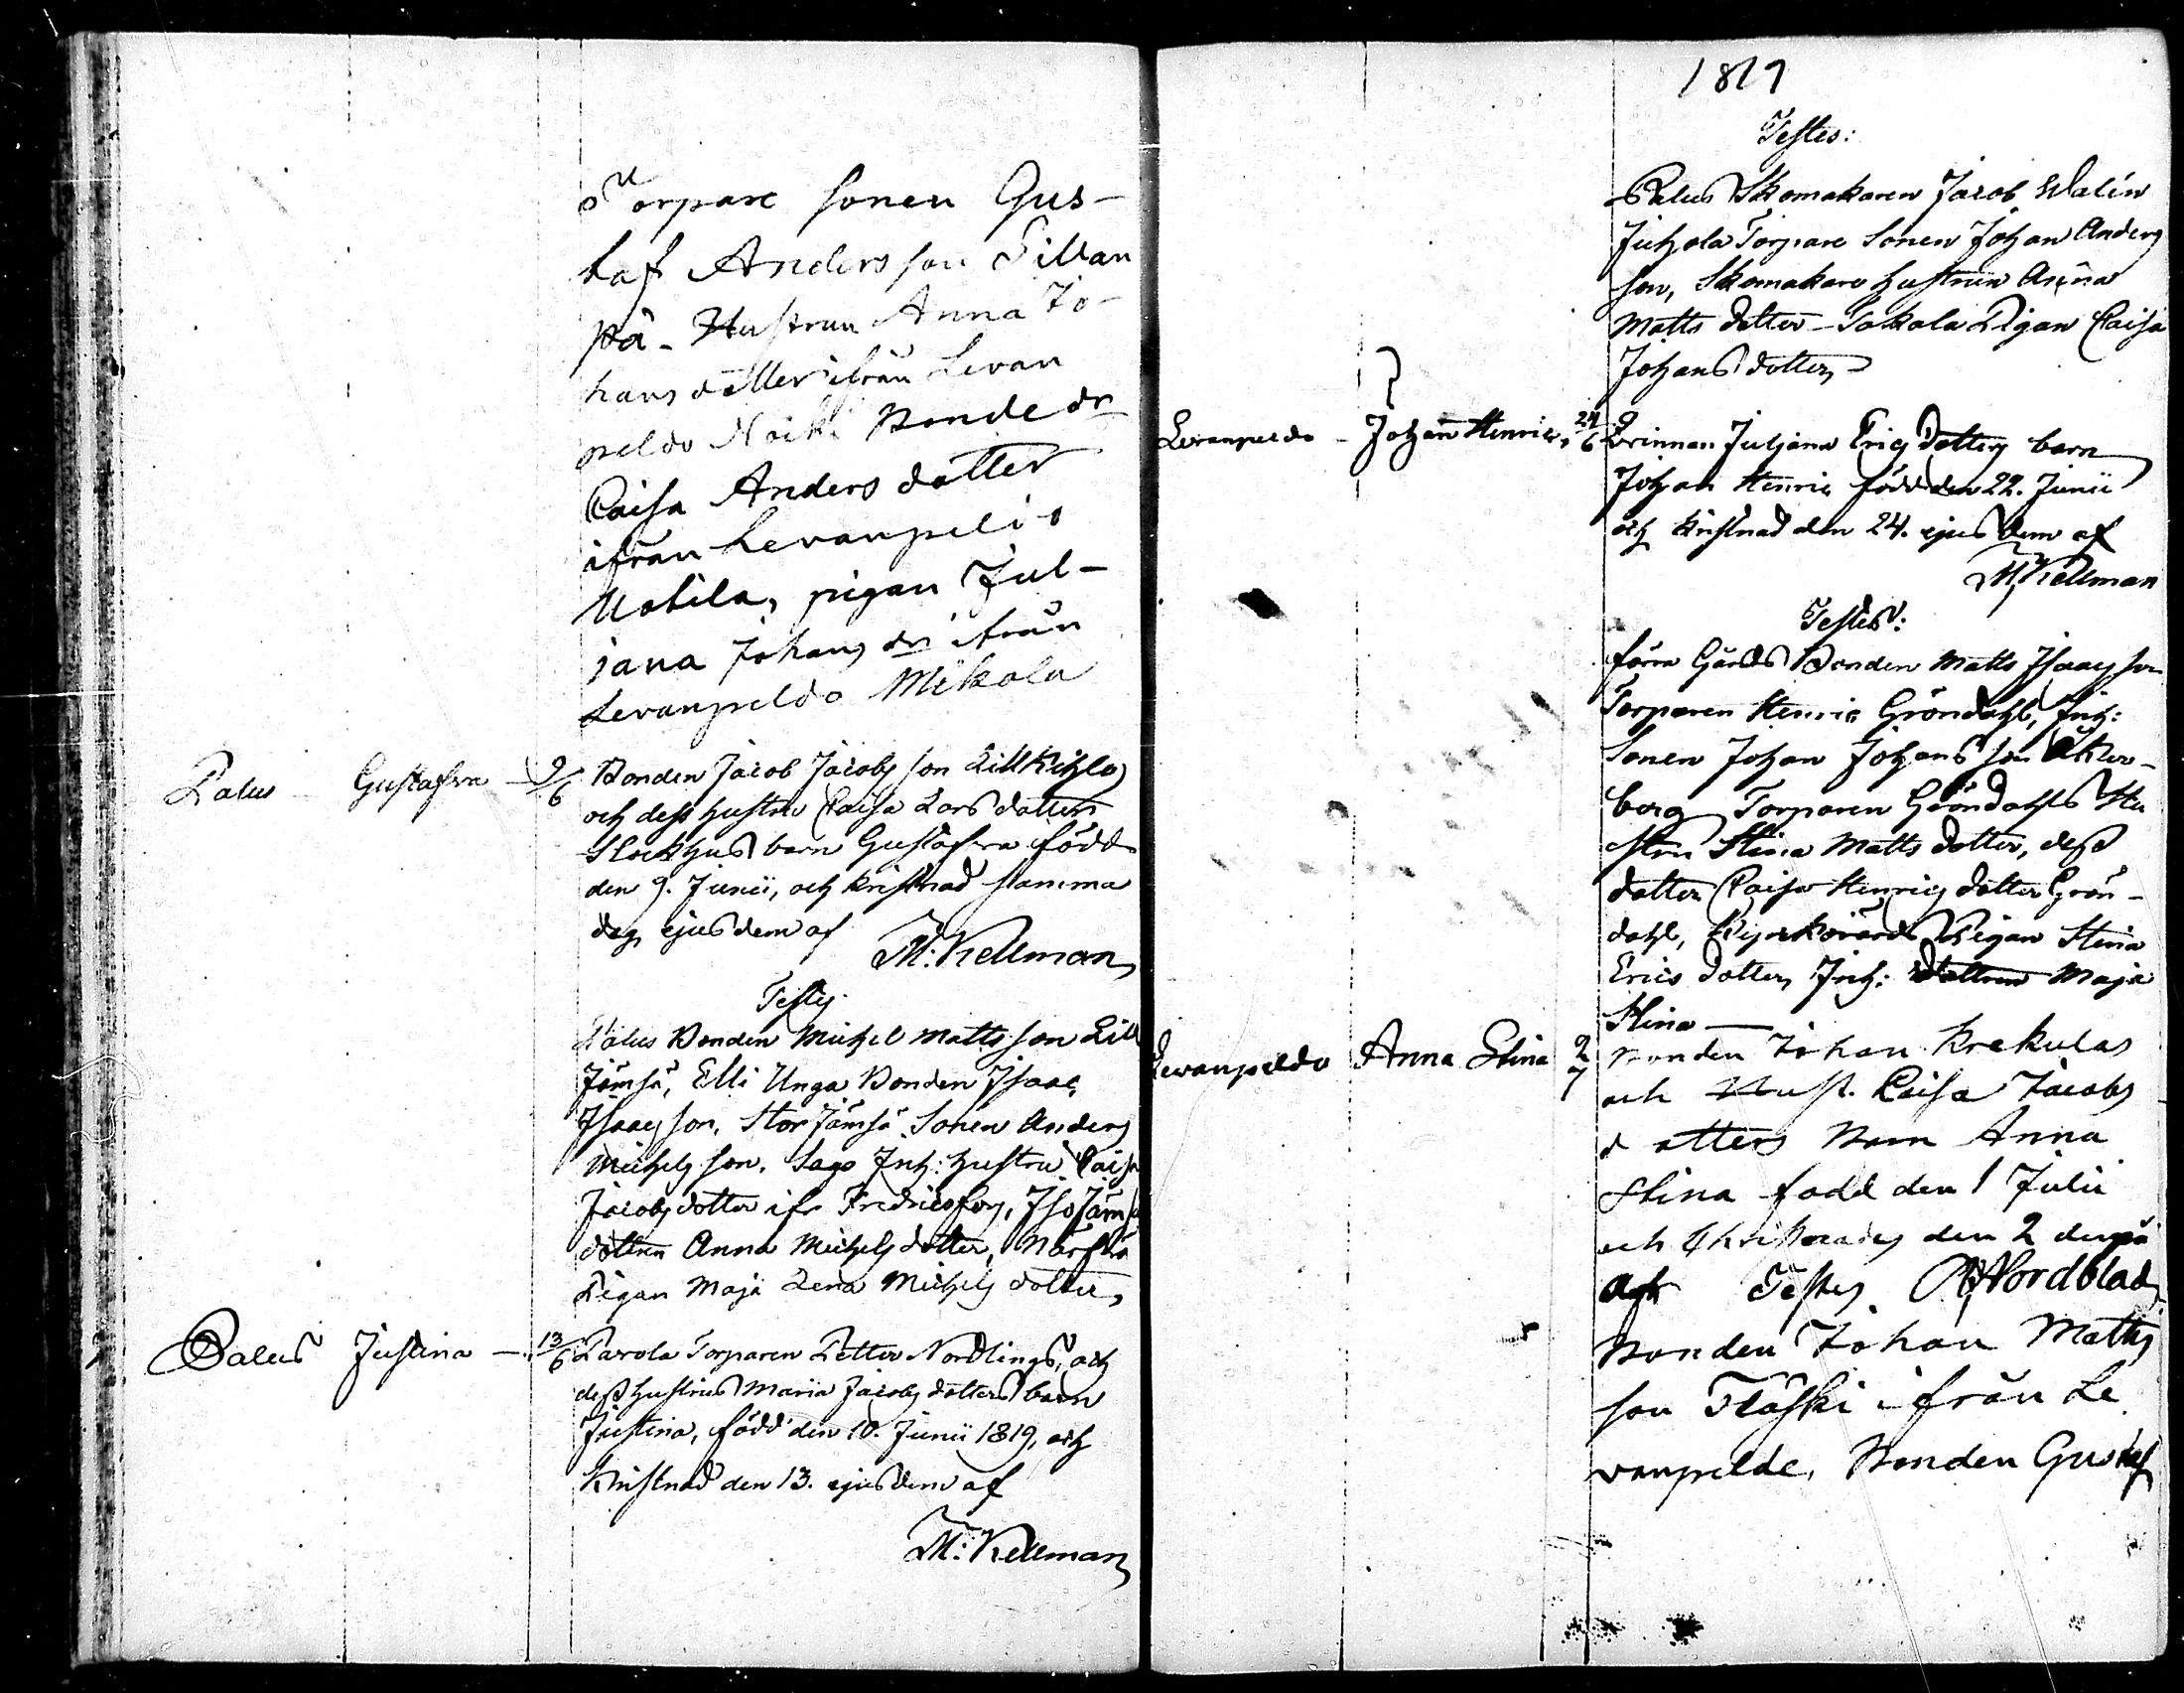 Torpare sonen Gus-
taf Andersson Sillan
på - Hustrun Anna Jo-
hans dotter ifrån Levan
peldo Bonde dr
Caisa Anders dotter
ifrån Levanpeldo
Uotila, pigan Jul-
jana Johans dr ifrån
Levanpeldo Mikola
Palus - Gustafva - 9/6 Bonden Jacob Jacobs son
och dess hustru Caisa Lars dotters
barn Gustafva född
den 9. Junii, och kristnad samma
dag ejusdem af
M: Kellman
Testes
Palus Bonden Michel Matts son Lill
Jämsä, Elli Unga Bonden Isaac
Isaacs son, Stor Jämsä Sonen Anders
Michels son, Inh: hustru Caisa
Jacobs dotter ifr. Fredricsfors, Iso Jämsä
dottren Anna Michels dotter,
Pigan Maja Lena Michels dotter,
Palus Justina - 13/6 Parola Torparen Petter Nordlings, och
dess hustrus Maria Jacobs dotters barn
Justina, född den 10. Junii 1819, och
kristnad den 13. ejusdem af
M: Kellman
1819
Testes:
Palus Skomakaren Jacob Walén
Juhola Torpare Sonen Johan Anders
son, Skomakare hustrun Anna
Matts dotter - Tokola Pigan Caisa
Johans dotter
Levanpeldo - Johan Henric, 24/6 Qvinnan Juljana Erics dotters barn
Johan Henric född den 22. Junii
och kristnad den 24. ejusdem af
M: Kellman
Testes:
förra Gårds Bonden Matts Isaacs son
Torparen Henric Gröndahl, Inh:
Sonen Johan Johans son Åker-
berg Torparen Gröndahls Hu
stru Stina Matts dotter, dess
dotter Caisa Henrics dotter Grön-
dahl, Pigan Stina
Erics dotter, Inh: dottren Maja
Stina -
Levanpeldo Anna Stina 2/7 Bonden Johan Krekulas
och Hust. Caisa Jacobs
dotters Barn Anna
Stina född den 1 Julii
och Christnades den 2 derpå
af Testes Nordblad
Bonden Johan Matts
son Fläski ifrån Le
vanpelde, Bonden Gustaf